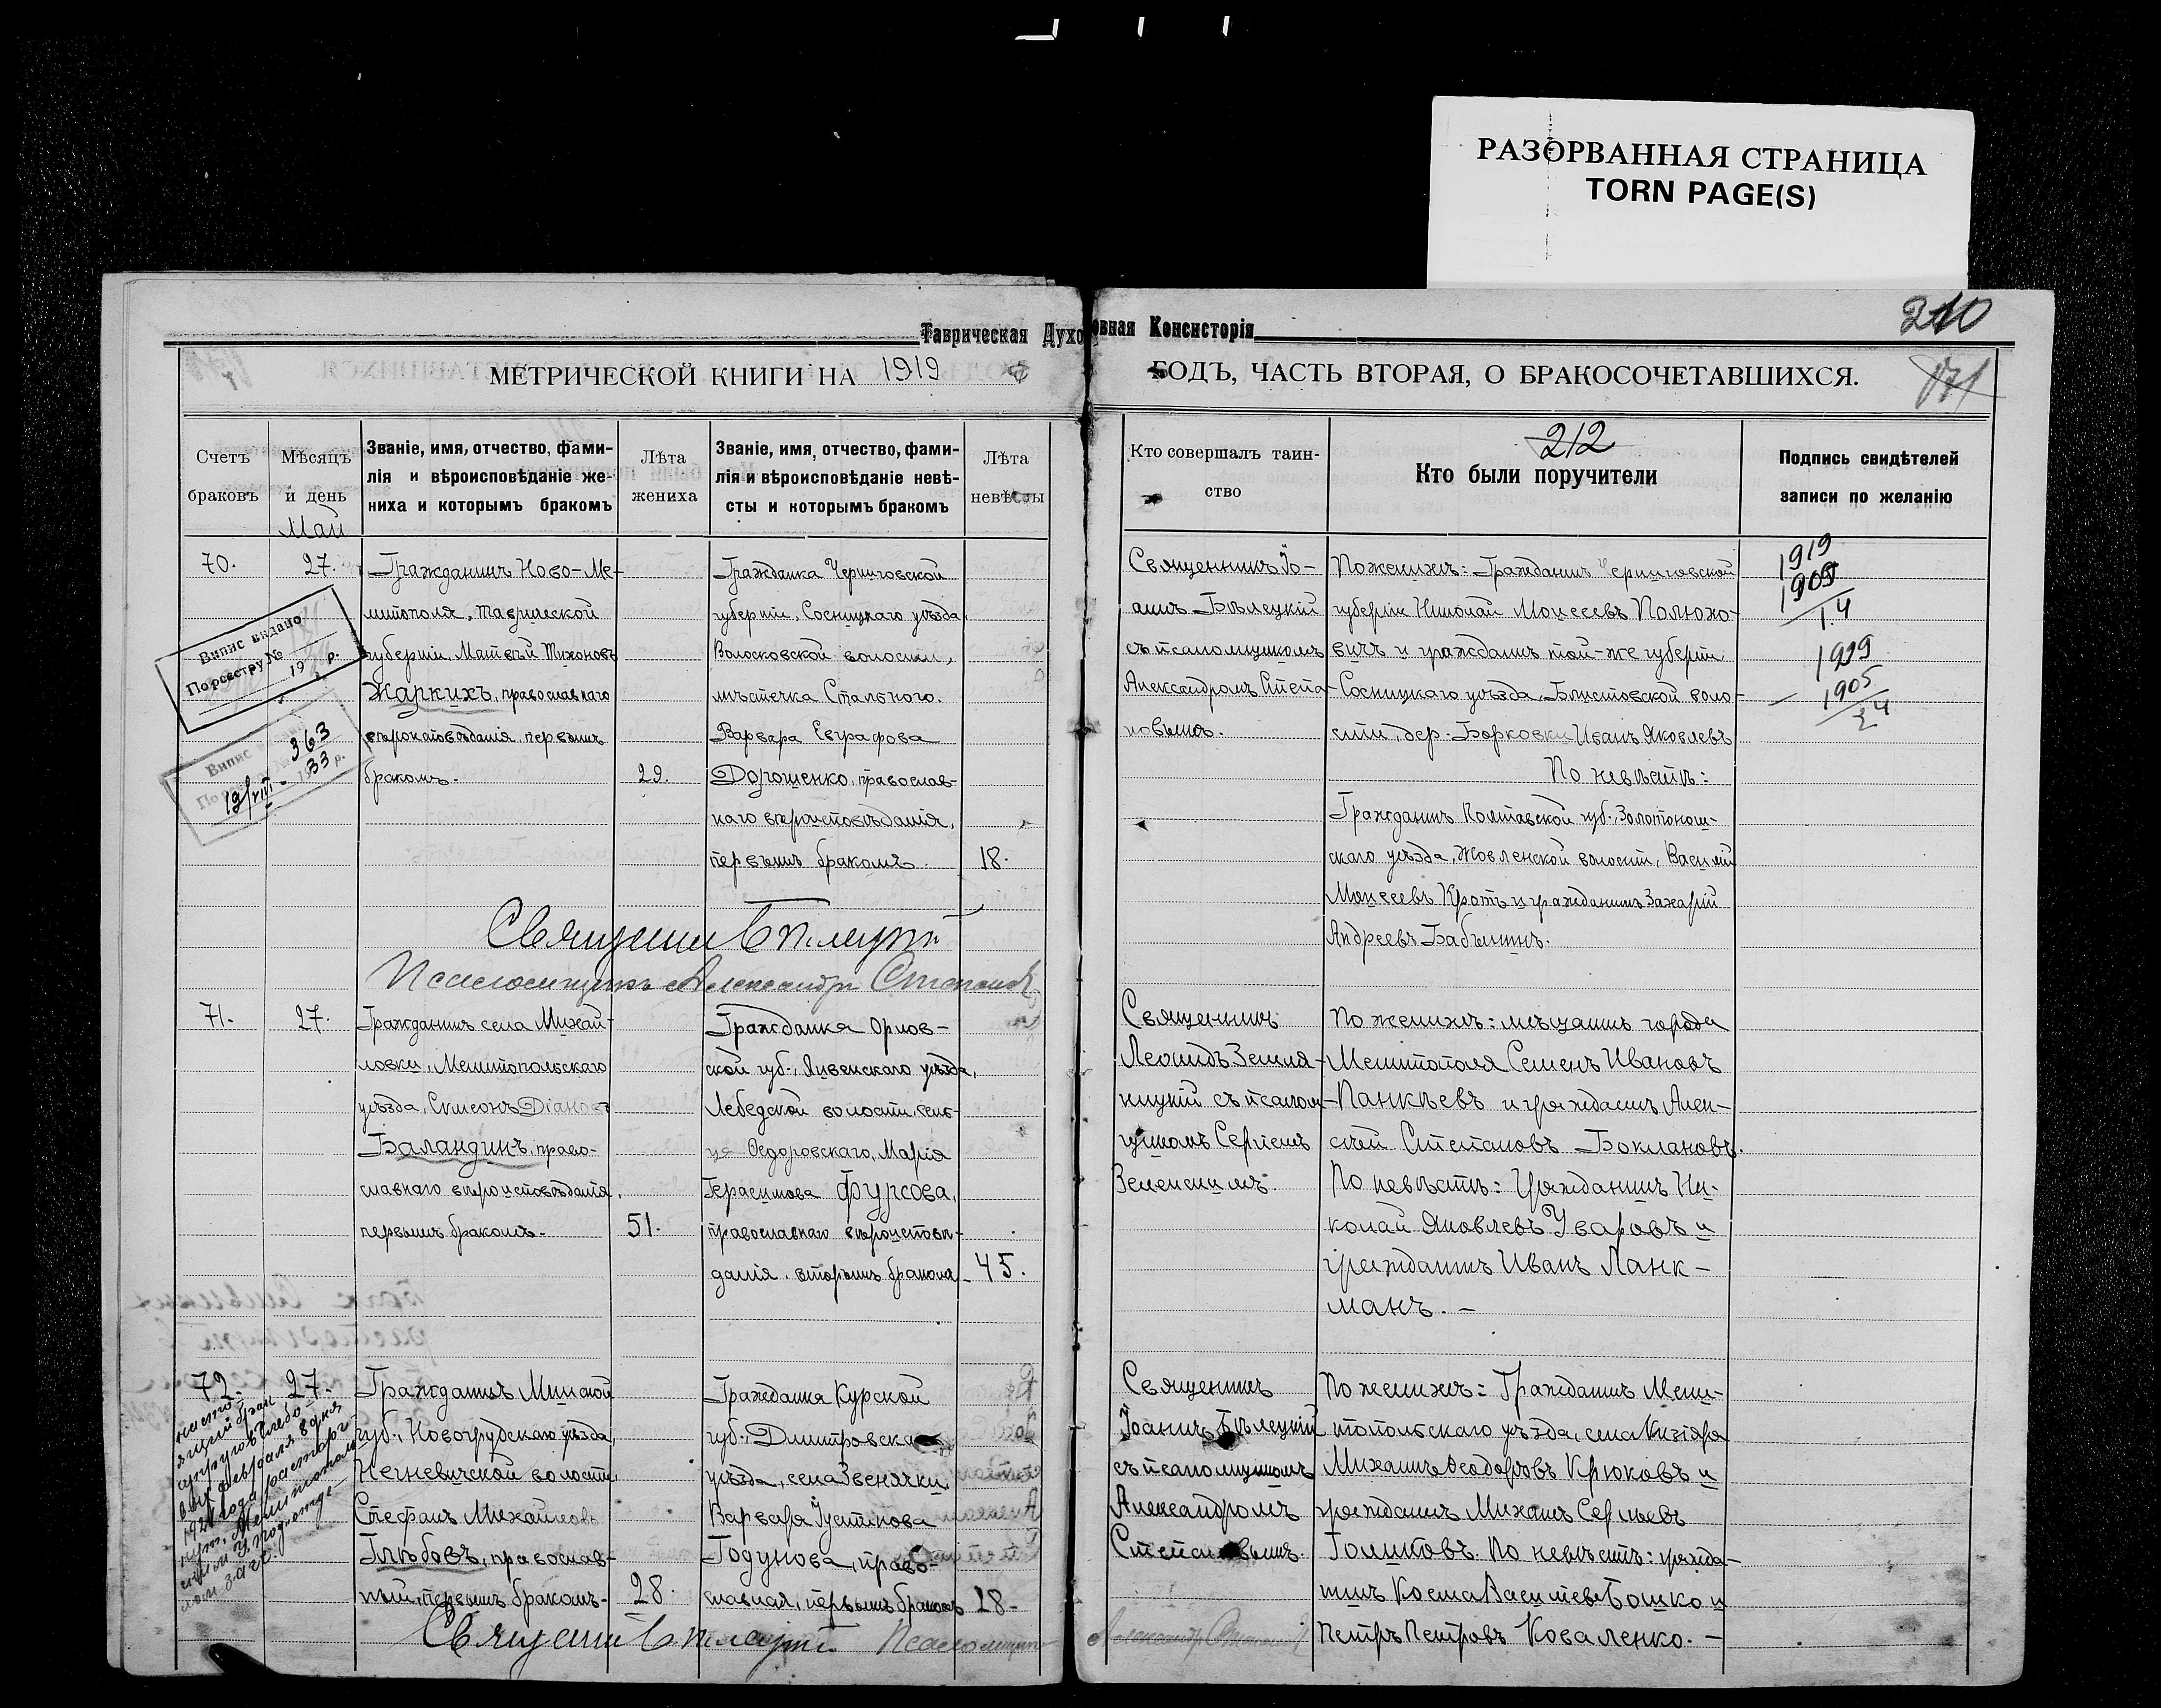 РАЗОРВАННАЯ СТРАНИЦА
TORN PAGE(S)
Таврическая Духовная Консисторія
210
171
МЕТРИЧЕСКОЙ КНИГИ НА 1919 ГОДЪ, ЧАСТЬ ВТОРАЯ, О БРАКОСОЧЕТАВШИХСЯ.
212
Счетъ браковъ
Мѣсяцъ и день
Май
Званіе, имя, отчество, фами-
лія и вѣроисповѣданіе же-
ниха и которымъ бракомъ
Лѣта жениха
Званіе, имя, отчество, фами-
лія и вѣроисповѣданіе невѣ-
сты и которымъ бракомъ
Лѣта невѣсты
Кто совершалъ таин-
ство
Кто были поручители
Подпись свидѣтелей
записи по желанію
70.
27.
Гражданинъ Ново-Ме-
литополя, Таврической
губерніи, Матвѣй Тихоновъ
Жаркихъ, православнаго
вѣроисповѣданія, первымъ
бракомъ.
29.
Гражданка Черниговской
губерніи, Сосницкаго уѣзда,
Волосковской волости,
мѣстечка Стольного.
Варвара Евграфова
Дорошенко, православ-
наго вѣроисповѣданія,
первымъ бракомъ.
18.
Священникъ Іо-
аннъ Бѣлецкій
съ псаломщикомъ
Александромъ Степа-
новымъ.
По женихѣ: Гражданинъ Черниговской
губерніи Николай Моисеевъ Полюхо-
вичъ и гражданинъ той-же губерніи
Сосницкаго уѣзда, воло-
сти, дер. Борковки Иванъ Яковлевъ
По невѣстѣ:
Гражданинъ Полтавской губ., Золотонош-
скаго уѣзда, волости, Василій
Моисеевъ Кротъ и гражданинъ Захарій
Андреевъ Бабынинъ.
1919
1905
14
1929
1905
24
Випис видано
По реєстру №
19 р.
Випис видано
363
19/VIII - 1933 р.
Священникъ Бѣлецкій
Псаломщикъ Александръ Степановъ
71.
27.
Гражданинъ села Михай-
ловки, Мелитопольскаго
уѣзда, Симеонъ Діановъ
Баландинъ, право-
славнаго вѣроисповѣданія,
первымъ бракомъ.
51.
Гражданка Орлов-
ской губ., Ливенскаго уѣзда,
Лебедской волости, сель-
ца Ѳедоровскаго, Марія
Герасимова Фурсова,
православнаго вѣроисповѣ-
данія, вторымъ бракомъ
45.
Священникъ
Леонидъ Земля-
ницкій съ псалом-
щикомъ Сергіемъ
Зеленскимъ.
По женихѣ: мѣщанинъ города
Мелитополя Семенъ Ивановъ
Панкѣевъ и гражданинъ Алек-
сѣй Степановъ Боклановъ.
По невѣстѣ: Гражданинъ Ни-
колай Яковлевъ Уваровъ и
гражданинъ Иванъ Ланк-
манъ. —
72.
27.
Гражданинъ Минской
губ., Новогрудскаго уѣзда,
Негневичской волости,
Стефанъ Михайловъ
Глѣбовъ, православ-
ный, первымъ бракомъ.
28.
Гражданка Курской
губ., Дмитровскаго
уѣзда, села Звенячки,
Варвара Іустинова
Годунова, право-
славная, первымъ бракомъ
28.
Священникъ
Іоаннъ Бѣлецкій
съ псаломщикомъ
Александромъ
Степановымъ.
По женихѣ: Гражданинъ Мели-
топольскаго уѣзда, села Кизіяра
Михаилъ Ѳеодоровъ Крюковъ и
гражданинъ Михаилъ Сергѣевъ
Голиковъ. По невѣстѣ: гражда-
нинъ Косма Васильевъ Бошко и
Петръ Петровъ Коваленко. —
Священникъ Бѣлецкій Псаломщикъ
Александръ Степановъ